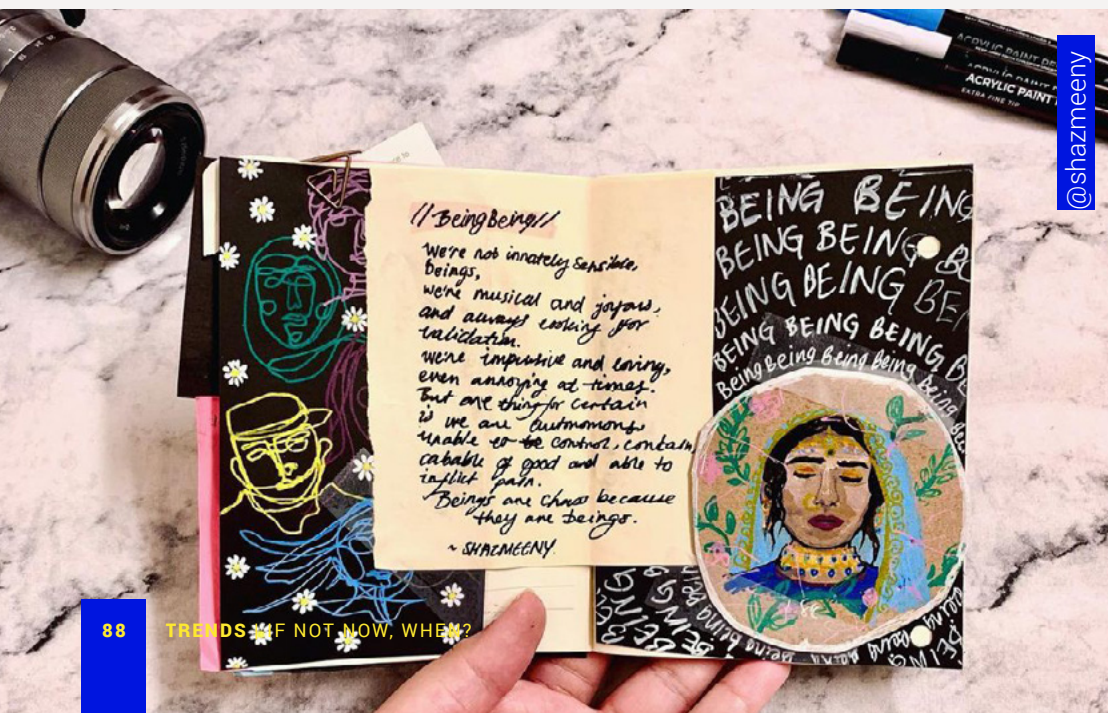 @shazmeeny
ACRYLIC PAINT
ACRYLIC PAINT
ACRYLIC PAINT
EXTRA FINE TIP
//BeingBeing//
We're not innately sensible,
beings,
we're musical and joyous,
and always looking for
validation.
We're impulsive and loving,
even annoying at times.
But one thing for certain
is we are autonomous
unable to be control, contain,
cabable of good and able to
inflict pain.
Beings are chaos because
they are beings.
~ SHAZMEENY
BEING BEING
BEING BEING BE
BEING BEING BE
BEING BEING BEING BE
Being Being Being Being Being Being Being
BEING
BEING
BEING
being
being being being being
BEING
88 TRENDS IF NOT NOW, WHEN?